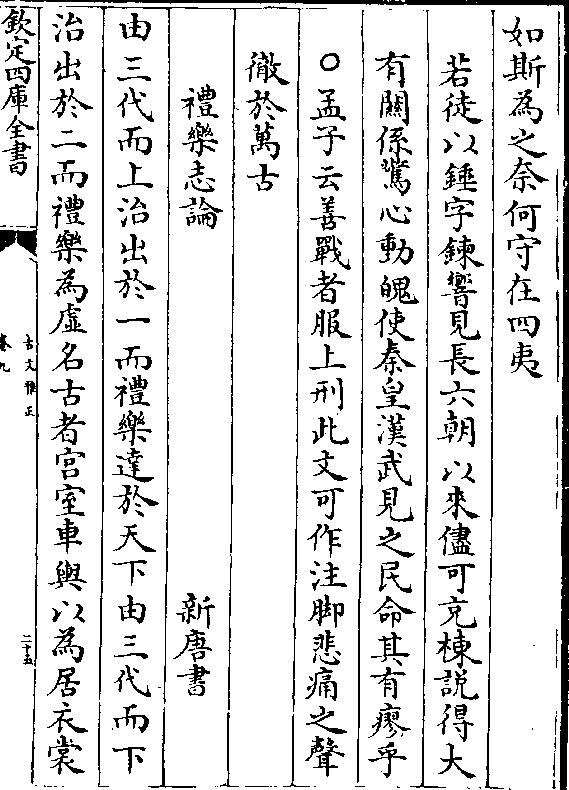 如斯為之奈何守在四夷
若徒以錘字鍊響見長六朝以來儘可充棟説得大
有關係驚心動魄使秦皇漢武見之民命其有瘳乎
○孟子云善戰者服上刑此文可作注脚悲痛之聲
徹於萬古
禮樂志論 新唐書
由三代而上治出於一而禮樂達於天下由三代而下
治出於二而禮樂為虛名古者宫室車輿以為居衣裳
欽定四庫全書
古文雅正
卷九
二十五